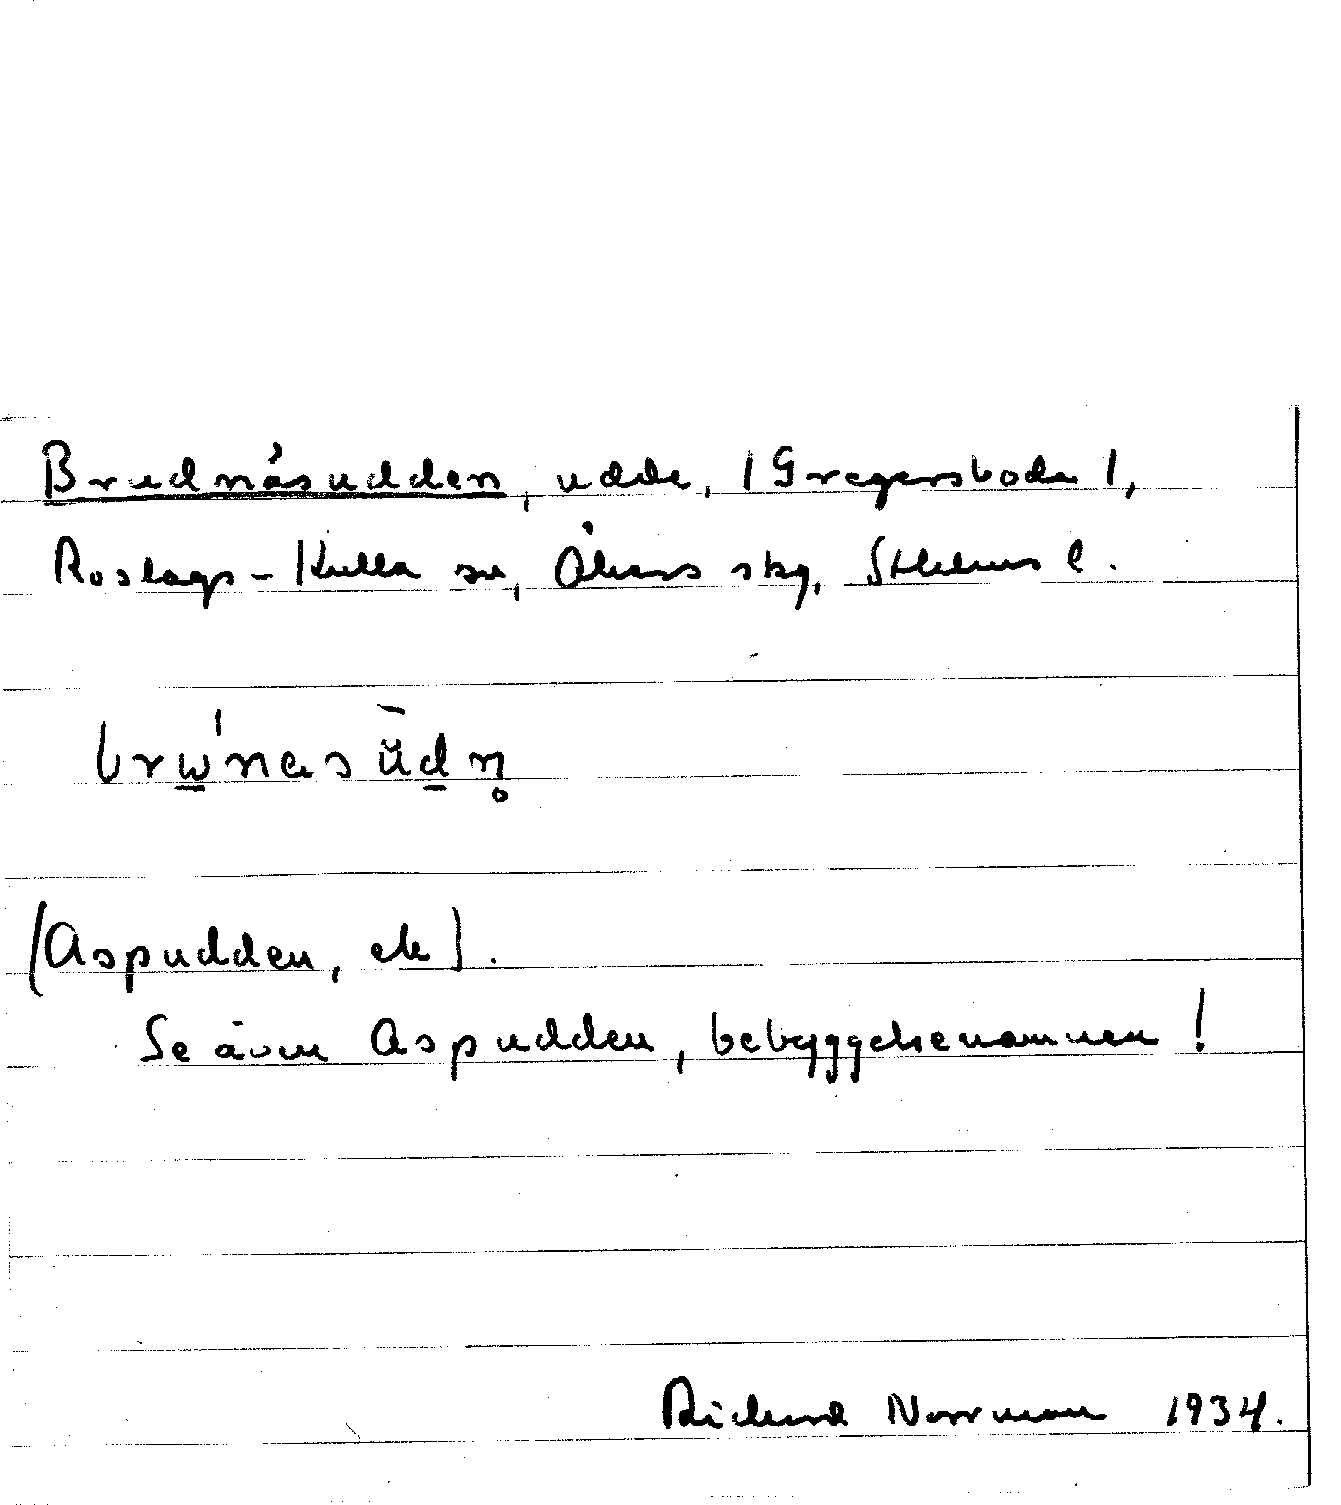 Brudnäsudden, udde, (Gregersboda),
Roslags-Kulla sn, Åkers skg, Sthlms l.
(Aspudden, ek).
Se även Aspudden, bebyggelsenamnen!
Richard Norrman 1934.